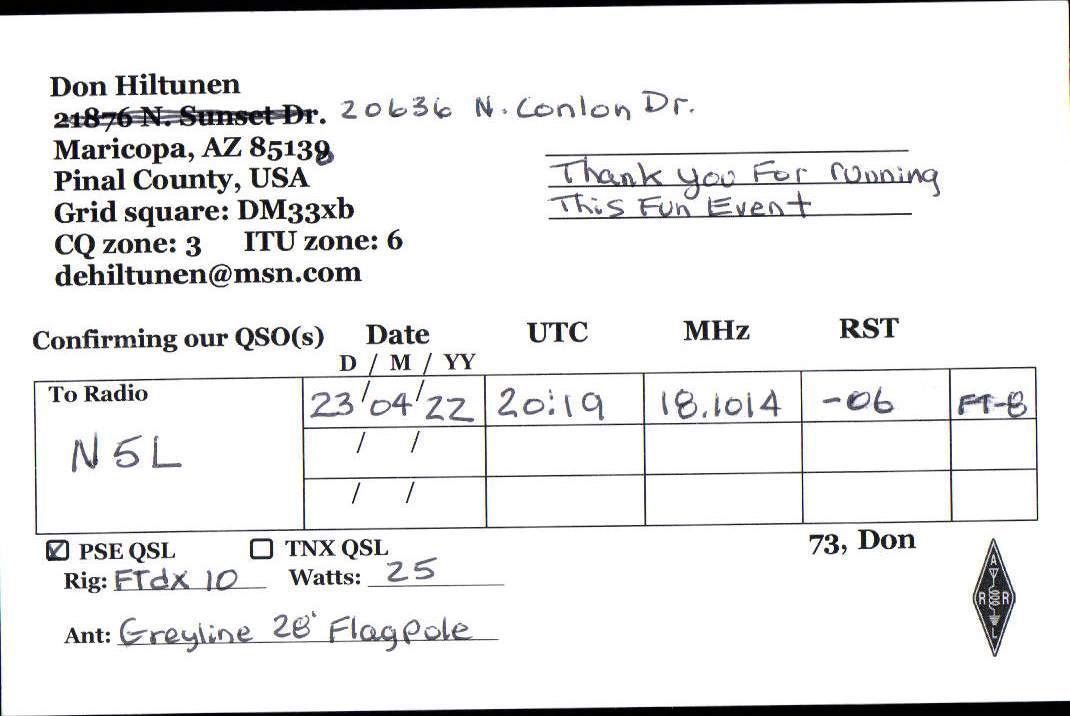 Don Hiltunen
21876 N. Sunset Dr. 20636 N. Conlon Dr.
Maricopa, AZ 85138
Pinal County, USA
Grid square: DM33xb
CQ zone: 3 ITU zone: 6
dehiltunen@msn.com
Thank you For running
This Fun Event
Confirming our QSO(s) Date UTC MHz RST
D / M / YY
To Radio 23/04/22 20:19 18.1014 -06 FT-8
N5L / /
/ /
PSE QSL TNX QSL 73, Don
Rig: FTdx 10 Watts: 25
Ant: Greyline 28' Flagpole
A
R R
L